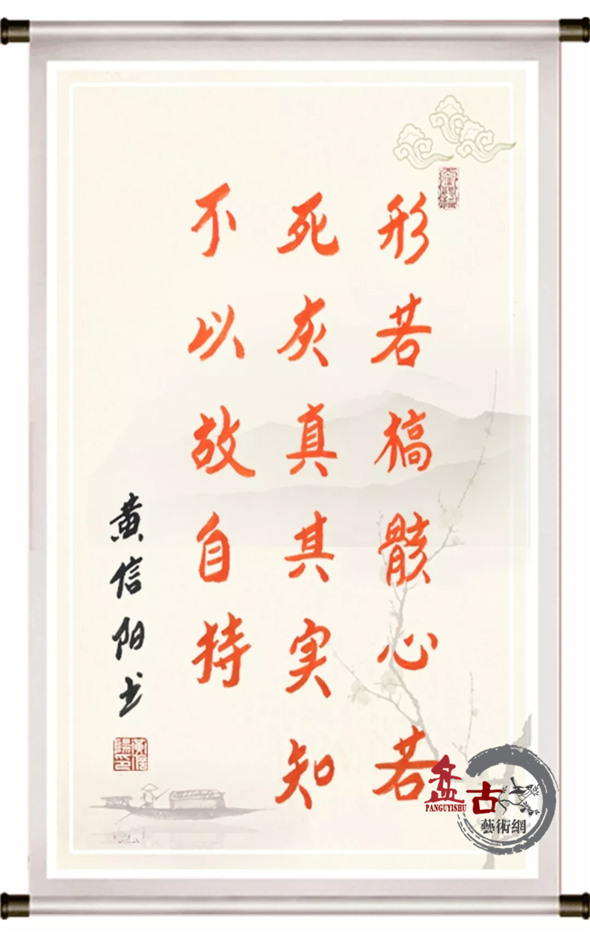 形若槁骸心若
死灰真其实知
不以故自持
黄信阳书
盘古
PANGUYISHU
藝術網